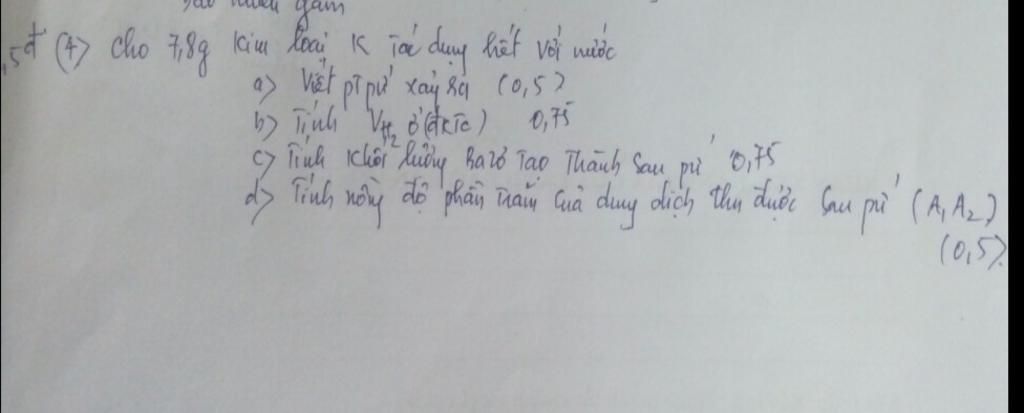 bao nhiêu gam
,5đ (4) cho 7,8g kim loại K Tác dụng hết với nước
a) Viết pTpứ xảy ra (0,5)
b) Tính VH2 ở (đkTc) 0,75
c) Tính khối lượng Bazơ Tạo Thành sau pứ 0,75
d) Tính nồng độ phần trăm của dung dịch thu được sau pứ (A1A2)
(0,5).